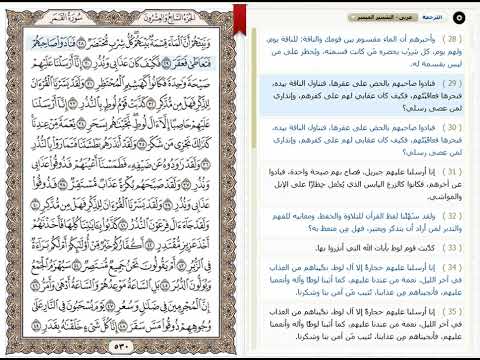 سورة القمر
الجزء السابع والعشرون
وَنَبِّئْهُمْ أَنَّ الْمَاءَ قِسْمَةٌ بَيْنَهُمْ كُلُّ شِرْبٍ مُحْتَضَرٌ ٢٨ فَنَادَوْا صَاحِبَهُمْ
فَتَعَاطَى فَعَقَرَ ٢٩ فَكَيْفَ كَانَ عَذَابِي وَنُذُرِ ٣٠ إِنَّا أَرْسَلْنَا عَلَيْهِمْ
صَيْحَةً وَاحِدَةً فَكَانُوا كَهَشِيمِ الْمُحْتَظِرِ ٣١ وَلَقَدْ يَسَّرْنَا الْقُرْآنَ
لِلذِّكْرِ فَهَلْ مِنْ مُدَّكِرٍ ٣٢ كَذَّبَتْ قَوْمُ لُوطٍ بِالنُّذُرِ ٣٣ إِنَّا أَرْسَلْنَا
عَلَيْهِمْ حَاصِبًا إِلَّا آلَ لُوطٍ نَجَّيْنَاهُمْ بِسَحَرٍ ٣٤ نِعْمَةً مِنْ عِنْدِنَا
كَذَلِكَ نَجْزِي مَنْ شَكَرَ ٣٥ وَلَقَدْ أَنْذَرَهُمْ بَطْشَتَنَا فَتَمَارَوْا بِالنُّذُرِ
٣٦ وَلَقَدْ رَاوَدُوهُ عَنْ ضَيْفِهِ فَطَمَسْنَا أَعْيُنَهُمْ فَذُوقُوا عَذَابِي
وَنُذُرِ ٣٧ وَلَقَدْ صَبَّحَهُمْ بُكْرَةً عَذَابٌ مُسْتَقِرٌّ ٣٨ فَذُوقُوا عَذَابِي
وَنُذُرِ ٣٩ وَلَقَدْ يَسَّرْنَا الْقُرْآنَ لِلذِّكْرِ فَهَلْ مِنْ مُدَّكِرٍ ٤٠
وَلَقَدْ جَاءَ آلَ فِرْعَوْنَ النُّذُرُ ٤١ كَذَّبُوا بِآيَاتِنَا كُلِّهَا فَأَخَذْنَاهُمْ
أَخْذَ عَزِيزٍ مُقْتَدِرٍ ٤٢ أَكُفَّارُكُمْ خَيْرٌ مِنْ أُولَئِكُمْ أَمْ لَكُمْ بَرَاءَةٌ
فِي الزُّبُرِ ٤٣ أَمْ يَقُولُونَ نَحْنُ جَمِيعٌ مُنْتَصِرٌ ٤٤ سَيُهْزَمُ الْجَمْعُ
وَيُوَلُّونَ الدُّبُرَ ٤٥ بَلِ السَّاعَةُ مَوْعِدُهُمْ وَالسَّاعَةُ أَدْهَى وَأَمَرُّ ٤٦
إِنَّ الْمُجْرِمِينَ فِي ضَلَالٍ وَسُعُرٍ ٤٧ يَوْمَ يُسْحَبُونَ فِي النَّارِ عَلَى
وُجُوهِهِمْ ذُوقُوا مَسَّ سَقَرَ ٤٨ إِنَّا كُلَّ شَيْءٍ خَلَقْنَاهُ بِقَدَرٍ ٤٩
٥٣٠
الترجمة
عربى - التفسير الميسر
( 28 ) وأخبرهم أن الماء مقسوم بين قومك والناقة: للناقة يوم،
ولهم يوم، كل شِرْب يحضره مَن كانت قسمته، ويُحظر على من
ليس بقسمة له.
( 29 ) فنادوا صاحبهم بالحض على عقرها، فتناول الناقة بيده،
فنحرها فعاقَبْتُهم، فكيف كان عقابي لهم على كفرهم، وإنذاري
لمن عصى رسلي؟
( 30 ) فنادوا صاحبهم بالحض على عقرها، فتناول الناقة بيده،
فنحرها فعاقَبْتُهم، فكيف كان عقابي لهم على كفرهم، وإنذاري
لمن عصى رسلي؟
( 31 ) إنا أرسلنا عليهم جبريل، فصاح بهم صيحة واحدة، فبادوا
عن آخرهم، فكانوا كالزرع اليابس الذي يُجْعل حِظارًا على الإبل
والمواشي.
( 32 ) ولقد سَهَّلْنا لفظ القرآن للتلاوة والحفظ، ومعانيه للفهم
والتدبر لمن أراد أن يتذكر ويعتبر، فهل مِن متعظ به؟
( 33 ) كذَّبت قوم لوط بآيات الله التي أنذِروا بها.
( 34 ) إنا أرسلنا عليهم حجارةً إلا آل لوط، نجَّيناهم من العذاب
في آخر الليل، نعمة من عندنا عليهم، كما أثبنا لوطًا وآله وأنعمنا
عليهم، فأنجيناهم مِن عذابنا، نُثيب مَن آمن بنا وشكرنا.
( 35 ) إنا أرسلنا عليهم حجارةً إلا آل لوط، نجَّيناهم من العذاب
في آخر الليل، نعمة من عندنا عليهم، كما أثبنا لوطًا وآله وأنعمنا
عليهم، فأنجيناهم مِن عذابنا، نُثيب مَن آمن بنا وشكرنا.